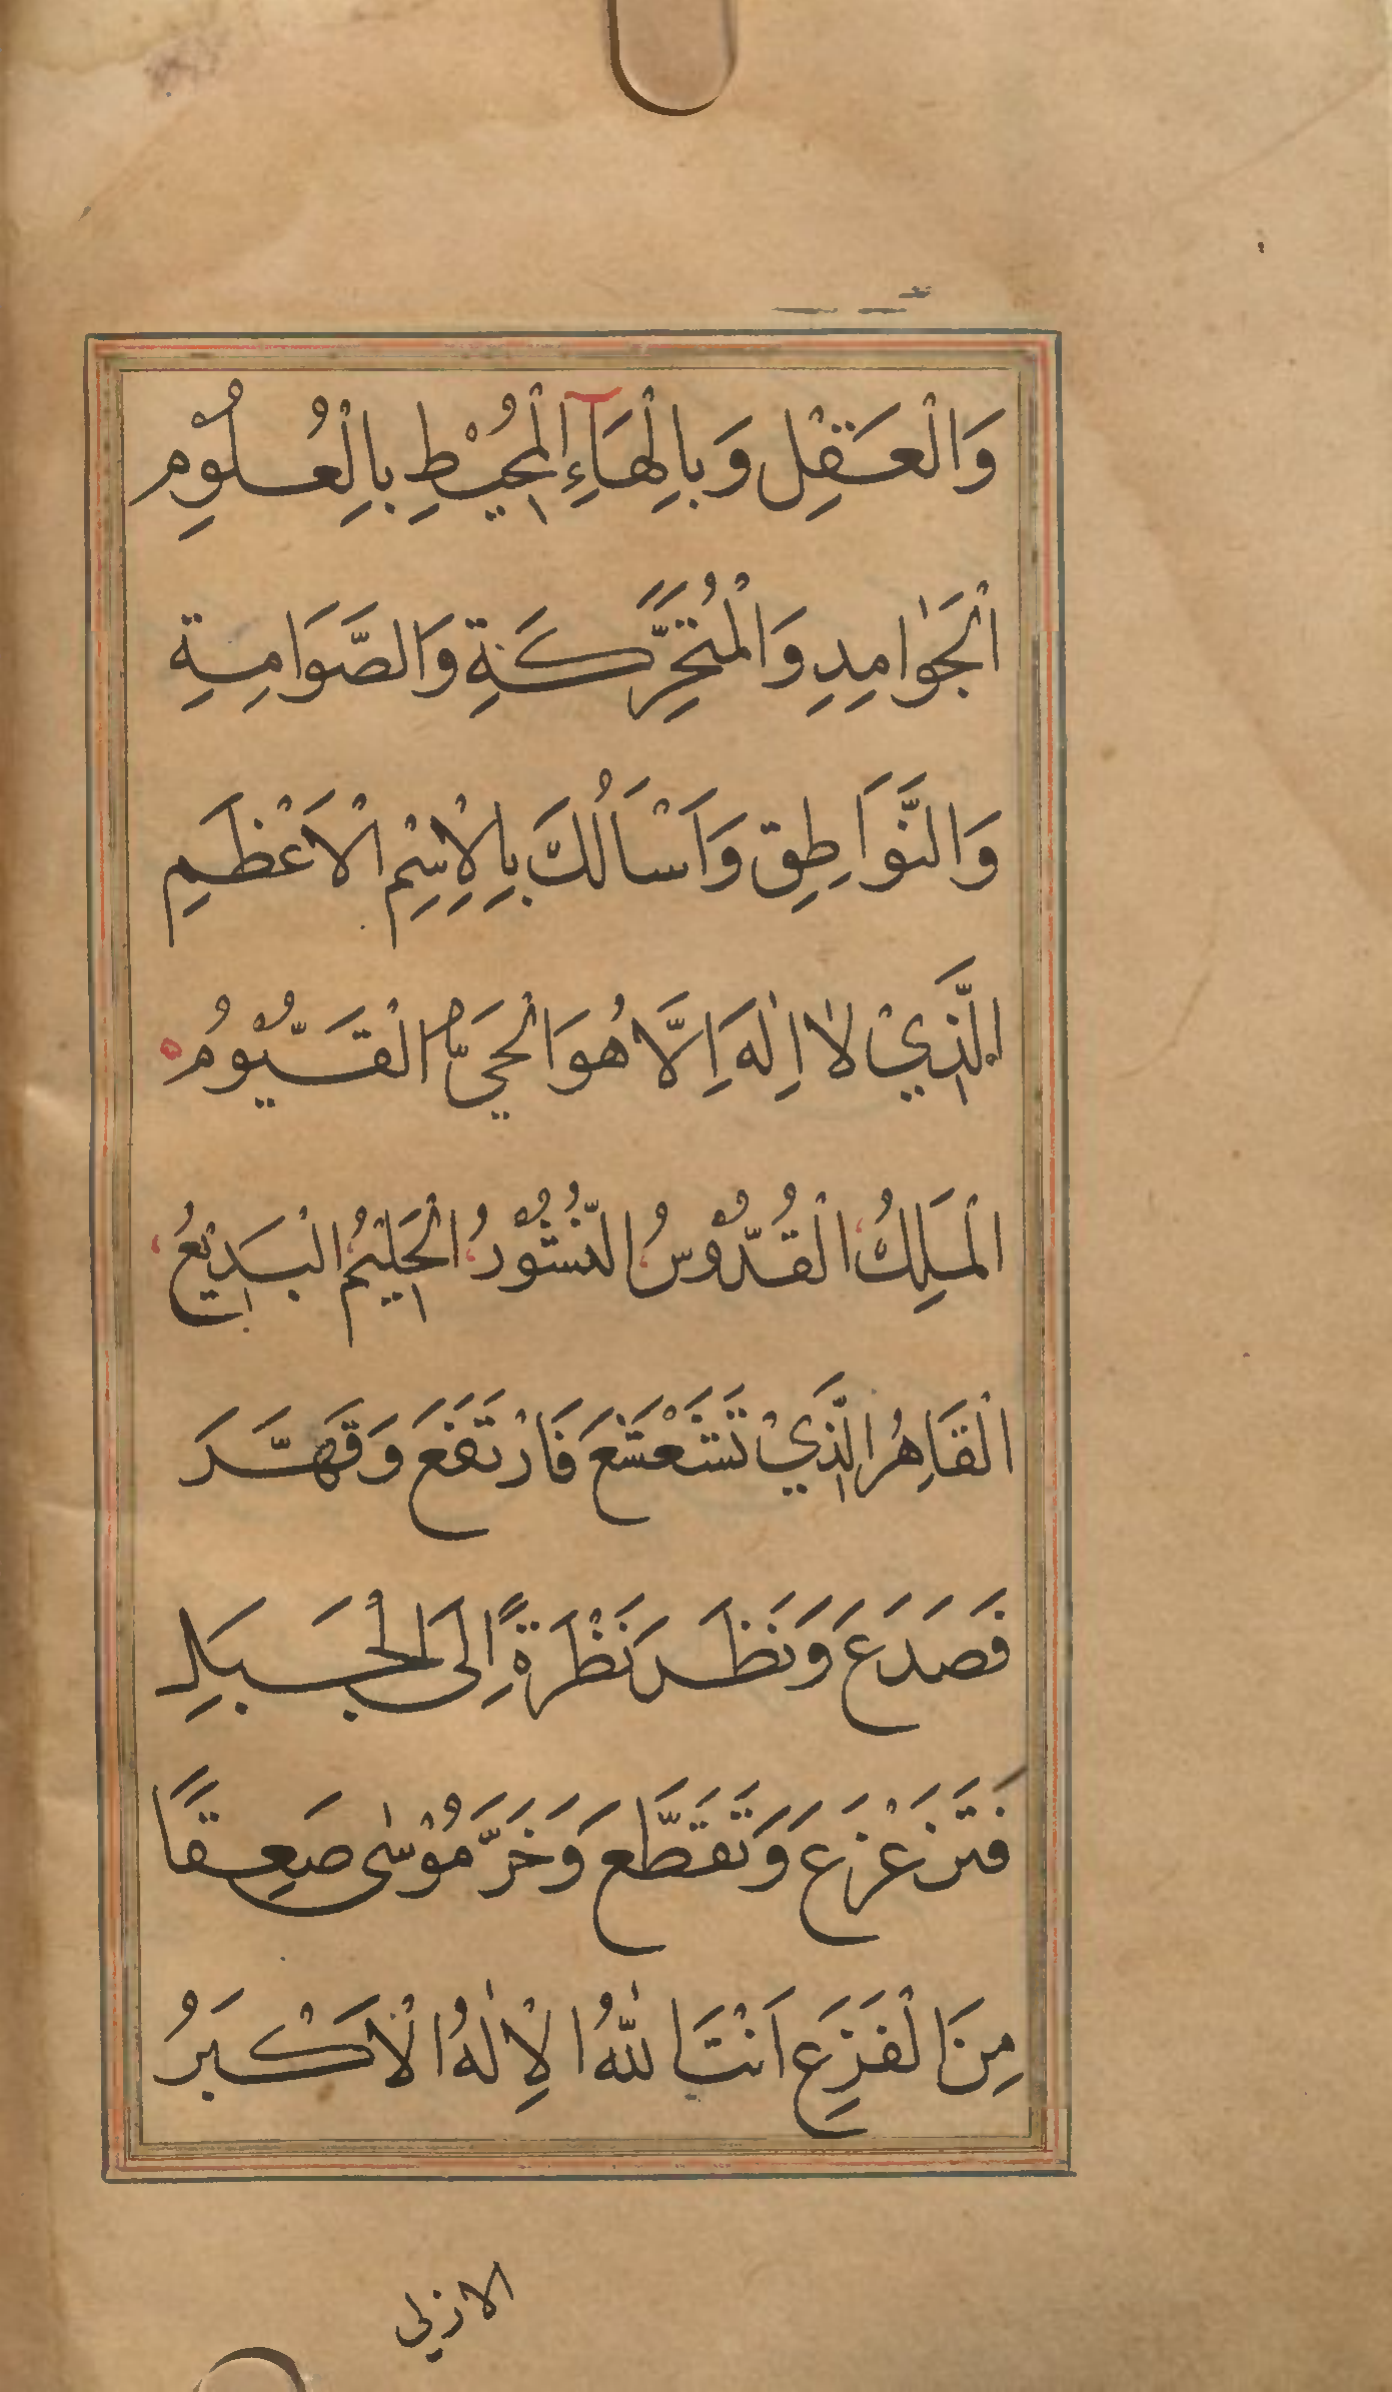 وَالْعَقْلِ وَبِالْهَآءِ الْمُحِيْطِ بِالْعُلُوْمِ
الْجَوٰامِدِ وَالْمُتَحَرِّكَةِ وَالصَّوَامِتَةِ
وَالنَّوَاطِقِ وَاَسْاَلُكَ بِالْاِسْمِ الْاَعْظَمِ
الَّذِيْ لَا اِلٰهَ اِلَّا هُوَ الْحَيُّ الْقَيُّوْمُ
الْمَلِكُ الْقُدُّوْسُ النُّشُوْرُ الْحَلِيْمُ الْبَدِيْعُ
الْقَاهِرُ الَّذِيْ تَشَعْشَعَ فَارْتَفَعَ وَقَهَّرَ
فَصَدَعَ وَنَظَرَ نَظْرَةً اِلَى الْجَبَلِ
فَتَزَعْزَعَ وَتَقَطَّعَ وَخَرَّ مُوْسٰى صَعِقًا
مِنَ الْفَزَعِ اَنْتَ اللهُ الْاِلٰهُ الْاَكْبَرُ
الازلي